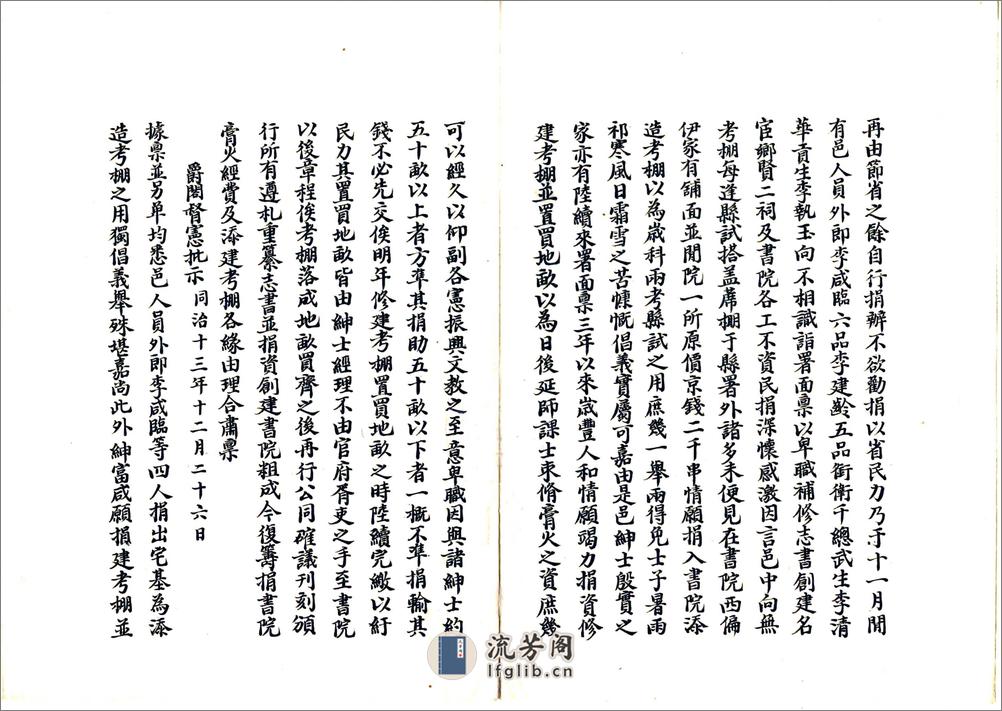 再由節省之餘自行捐辦不欲勸捐以省民力乃于十一月間
有邑人員外即李咸臨六品李建齡五品銜衛千總武生李清
華貢生李執玉向不相識詣署面稟以卑職補修志書創建名
宦鄉賢二祠及書院各工不資民捐深懷感激因言邑中向無
考棚每逢縣試搭盖蓆棚于縣署外諸多未便見在書院西偏
伊家有舖面並閒院一所原價京錢二千串情願捐入書院添
造考棚以為歲科兩考縣試之用庶幾一舉兩得免士子暑雨
祁寒風日霜雪之苦慷慨倡義實屬可嘉由是邑紳士殷實之
家亦有陸續來署面稟三年以來歲豐人和情願竭力捐資修
建考棚並置買地畝以為日後延師課士束脩膏火之資庶幾
可以經久以仰副各憲振興文教之至意卑職因與諸紳士約
五十畝以上者方準其捐助五十畝以下者一概不準捐輸其
錢不必先交俟明年修建考棚置買地畝之時陸續完繳以紓
民力其置買地畝皆由紳士經理不由官府胥吏之手至書院
以後章程俟考棚落成地畝買齊之後再行公同確議刊刻頒
行所有遵札重纂志書並捐資創建書院粗成今復籌捐書院
膏火經費及添建考棚各緣由理合肅稟
爵閣督憲批示同治十三年十二月二十六日
據稟並另单均悉邑人員外即李咸臨等四人捐出宅基為添
造考棚之用獨倡義舉殊堪嘉尚此外紳富咸願捐建考棚並
流芳阁
lfglib.cn